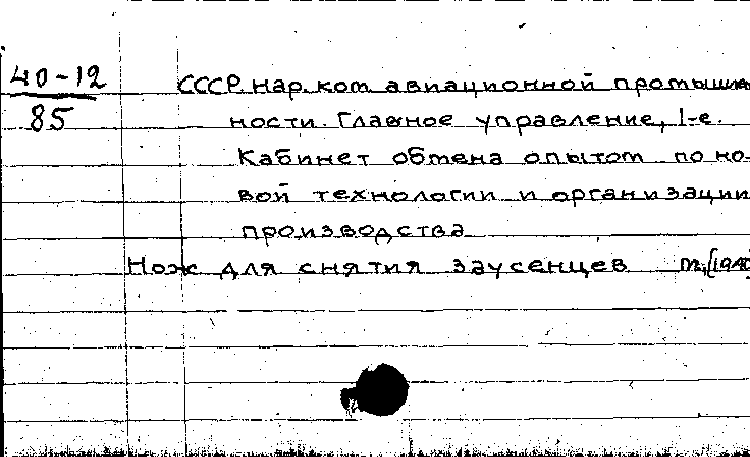 40-12
85
СССР. Нар. ком. авиационной промышлен-
ности. Главное управление, 1-е.
Кабинет обмена опытом по но-
вой технологии и организации
производства
Нож для снятия заусенцев м, [1940